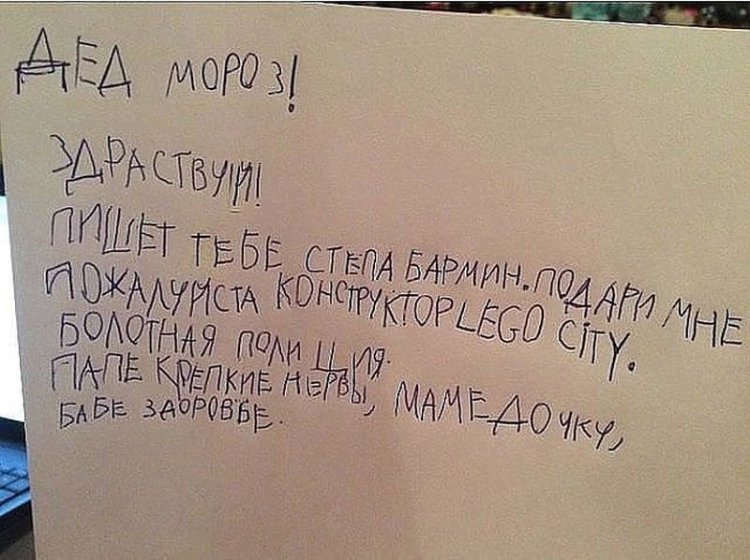 ДЕД МОРОЗ!
ЗДРАСТВУЙ!
ПИШЕТ ТЕБЕ СТЕПА БАРМИН. ПОДАРИ МНЕ
ПОЖАЛУЙСТА КОНСТРУКТОР LEGO CITY.
БОЛОТНАЯ ПОЛИЦИЯ.
ПАПЕ КРЕПКИЕ НЕРВЫ, МАМЕ ДОЧКУ,
БАБЕ ЗДОРОВЬЕ.